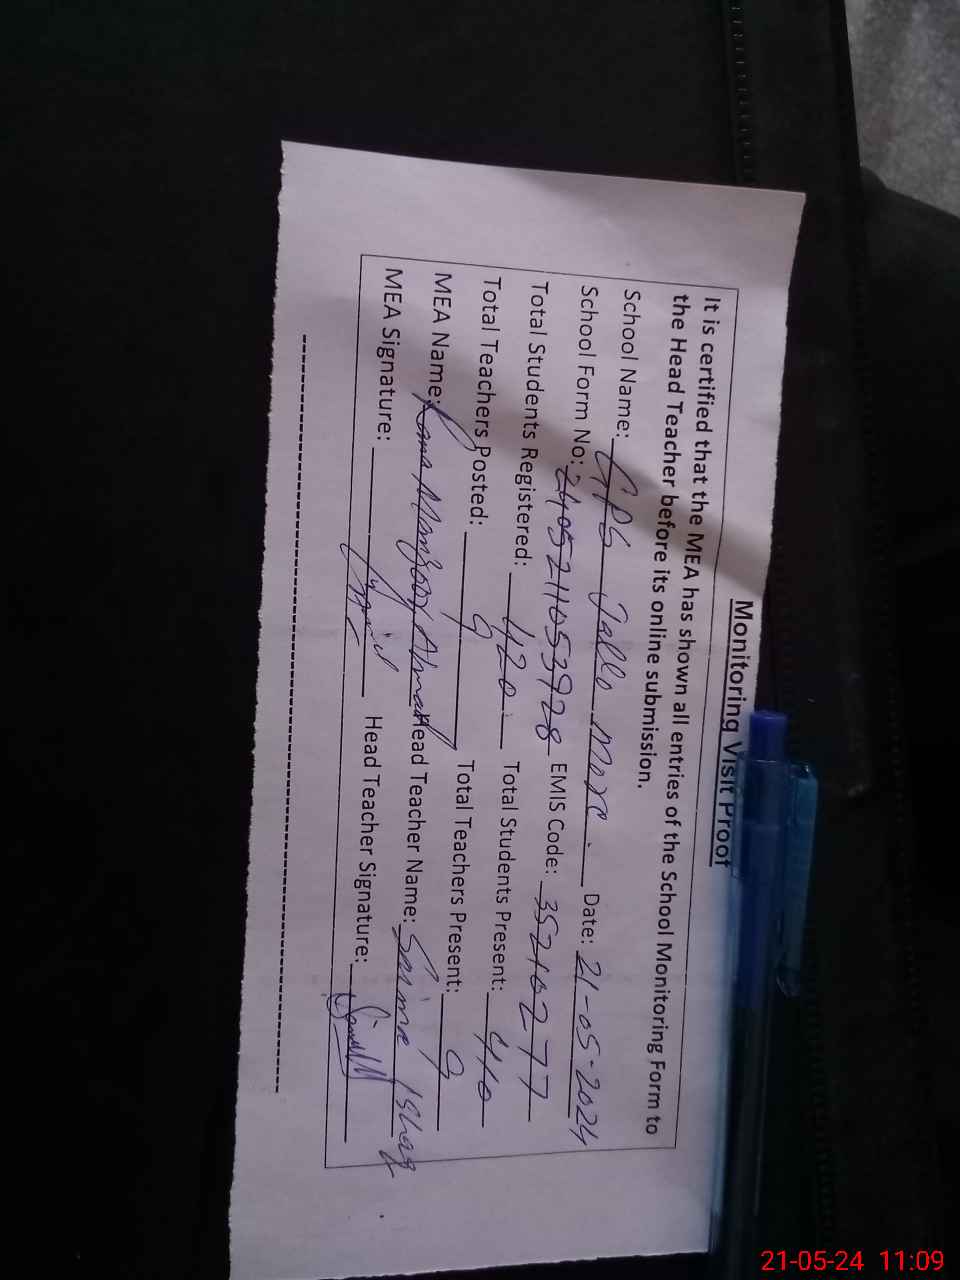 Monitoring Visit Proof
It is certified that the MEA has shown all entries of the School Monitoring Form to
the Head Teacher before its online submission.
School Name: GPS Jallo More. Date: 21-05-2024
School Form No: 2405211053928 EMIS Code: 35210277
Total Students Registered: 420 Total Students Present: 410
Total Teachers Posted: 9 Total Teachers Present: 9
MEA Name: Rana Manzoor Ahmad Head Teacher Name: Saima Ishaq
MEA Signature: Head Teacher Signature:
21-05-24 11:09